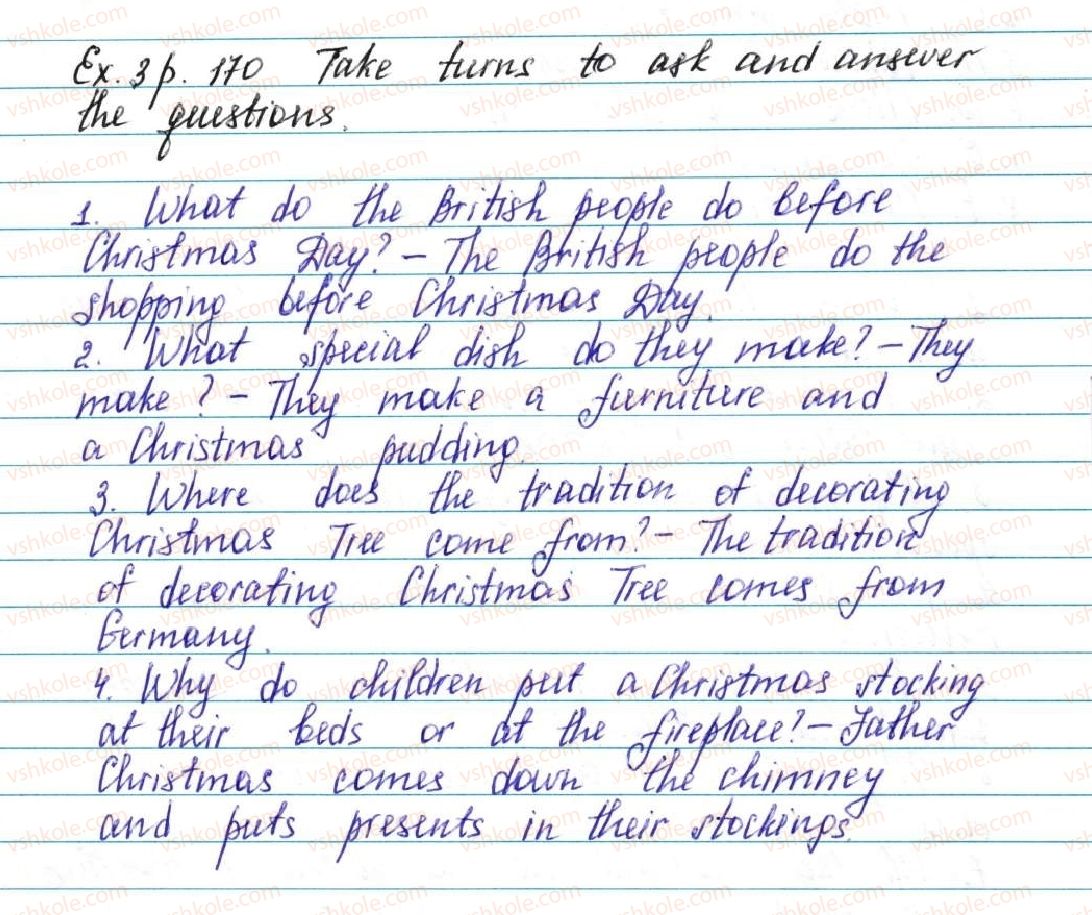 Ex. 3 p. 170 Take turns to ask and answer
the questions.
1. What do the British people do before
Christmas Day? – The British people do the
shopping before Christmas Day.
2. What special dish do they make? – They
make? – They make a furniture and
a Christmas pudding.
3. Where does the tradition of decorating
Christmas Tree come from? – The tradition
of decorating Christmas Tree comes from
Germany.
4. Why do children put a Christmas stocking
at their beds or at the fireplace? – Father
Christmas comes down the chimney
and puts presents in their stockings.
vshkole.com